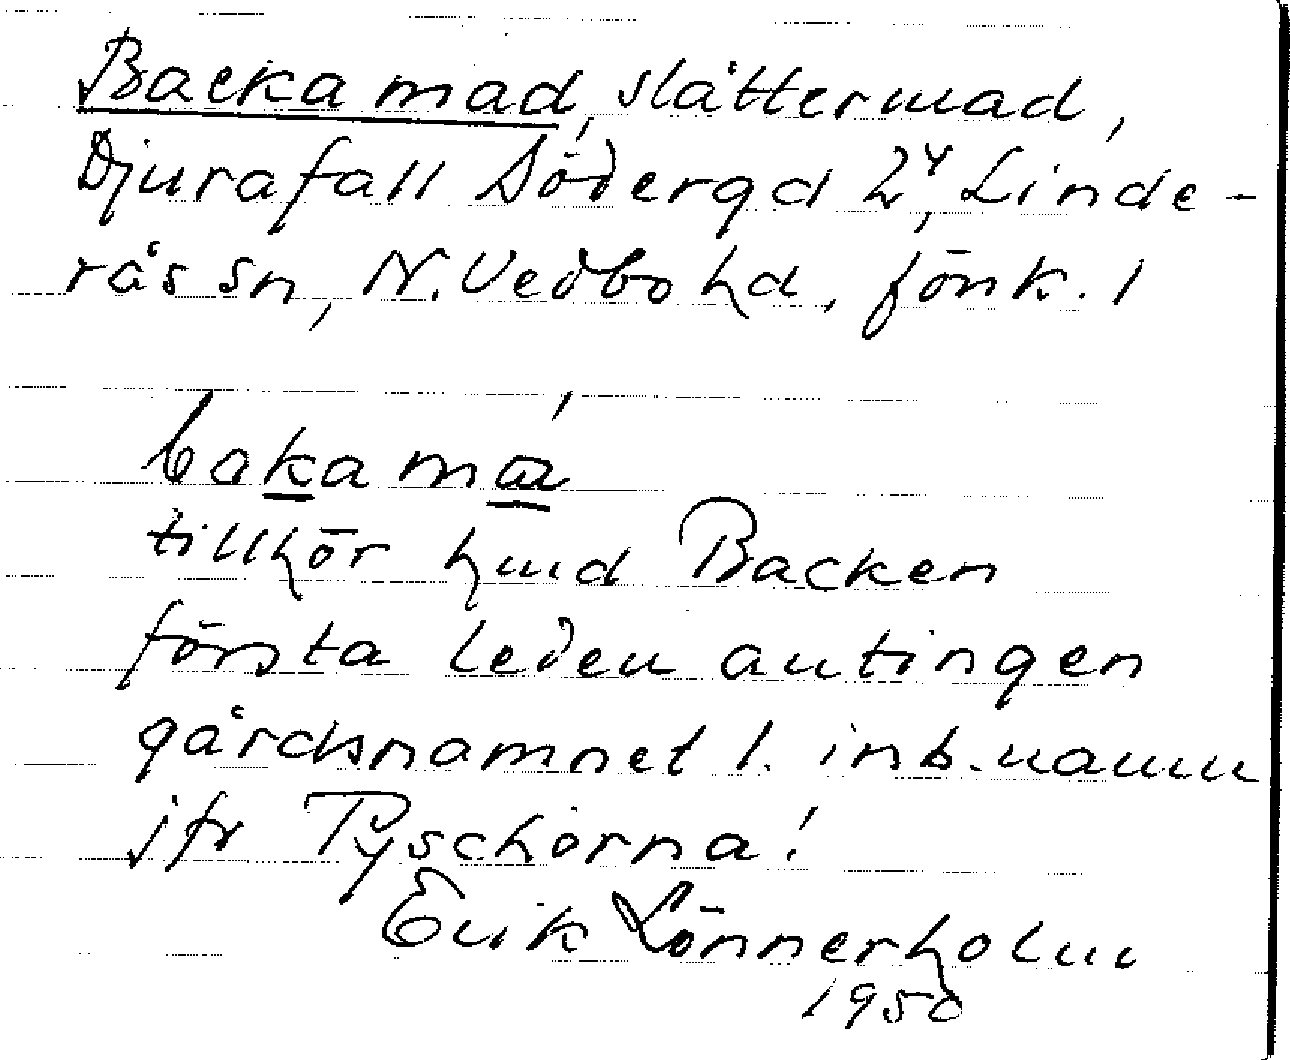 Backa mad, slåttermad,
Djurafall Söderqd 2⁴, Linde-
rås sn, N. Vedbo hd, Jönk. l
bakama
tillhör hmd Backen
första leden antingen
gårdsnamnet l. inb. namn
jfr Pyschorna!
Erik Lönnerholm
1950